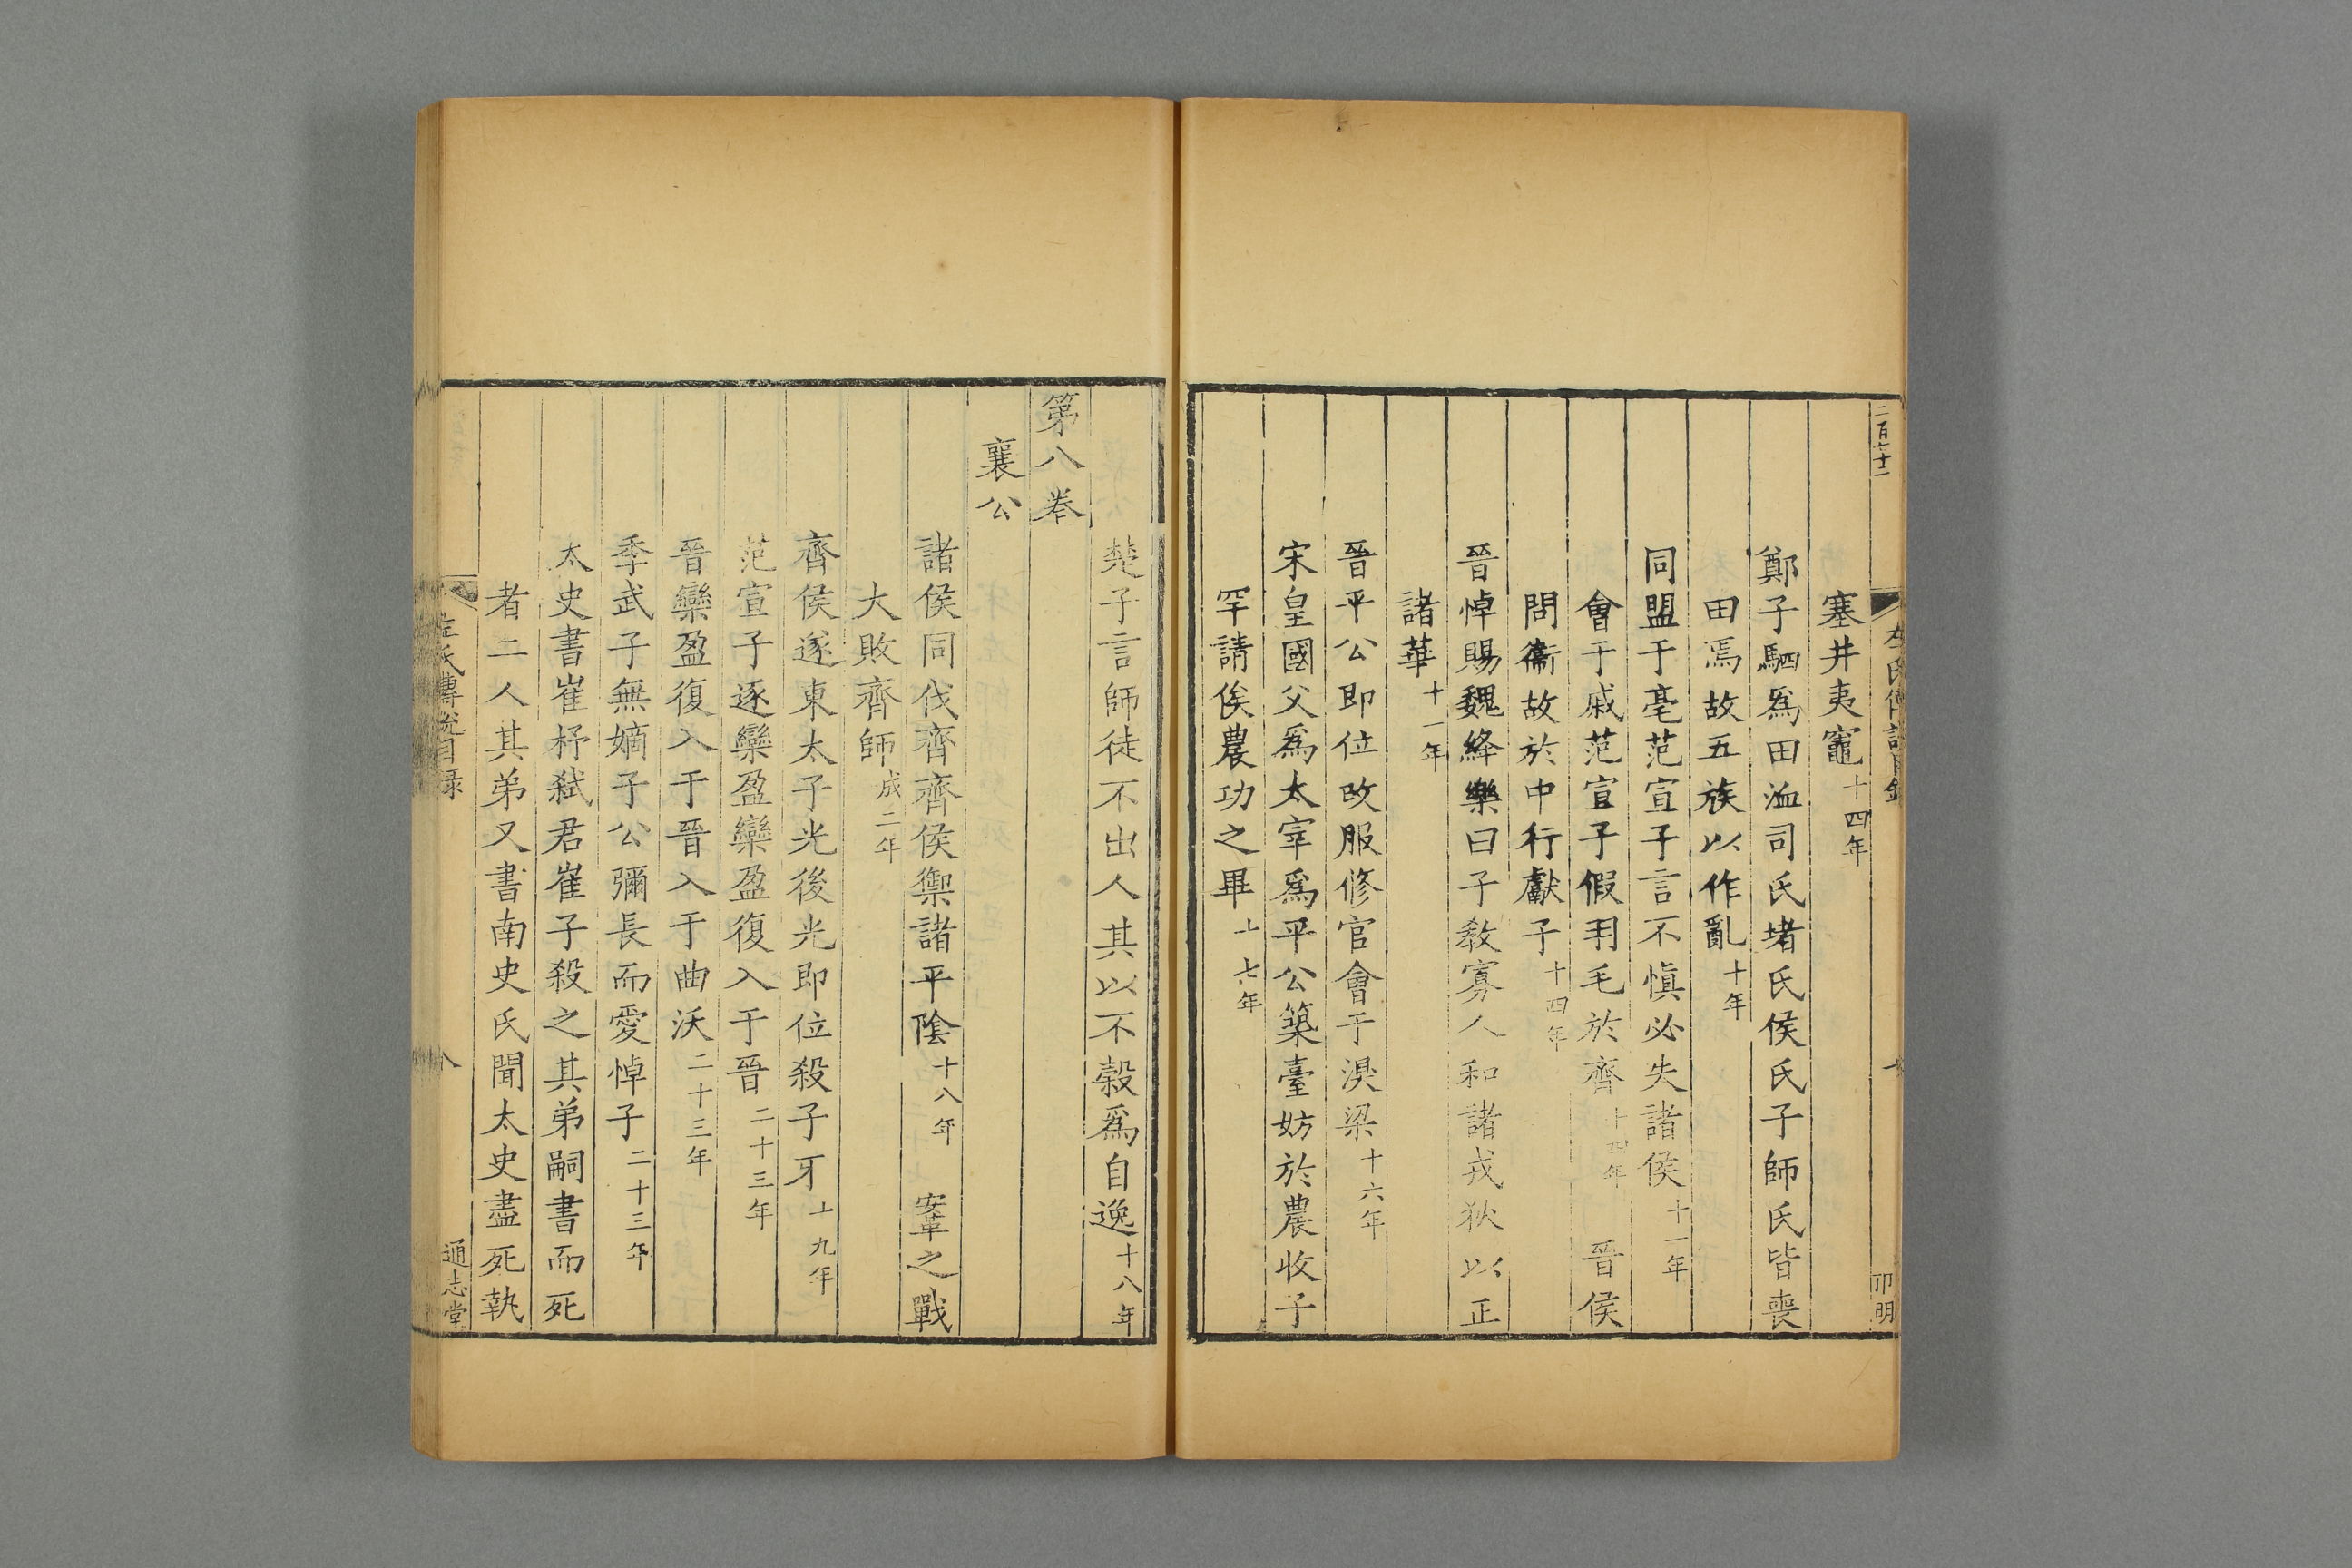 二百七十二
左氏傳說目錄
卬明
塞井夷竈十四年
鄭子駟爲田洫司氏堵氏侯氏子師氏皆喪
田焉故五族以作亂十年
同盟于亳范宣子言不愼必失諸侯十一年
會于戚范宣子假羽毛於齊十四年 晉侯
問衞故於中行獻子十四年
晉悼賜魏絳樂曰子敎寡人和諸戎狄以正
諸華十一年
晉平公即位改服修官會于湨梁十六年
宋皇國父爲太宰爲平公築臺妨於農收子
罕請俟農功之畢十七年
楚子言師徒不出人其以不穀爲自逸十八年
第八卷
襄公
諸侯同伐齊齊侯禦諸平隂十八年 鞌之戰
大敗齊師成二年
齊侯遂東太子光後光即位殺子牙十九年
范宣子逐欒盈欒盈復入于晉二十三年
晉欒盈復入于晉入于曲沃二十三年
季武子無嫡子公彌長而愛悼子二十三年
太史書崔杼弑君崔子殺之其弟嗣書而死
者二人其弟又書南史氏聞太史盡死執
左氏傳說目錄
八
通志堂